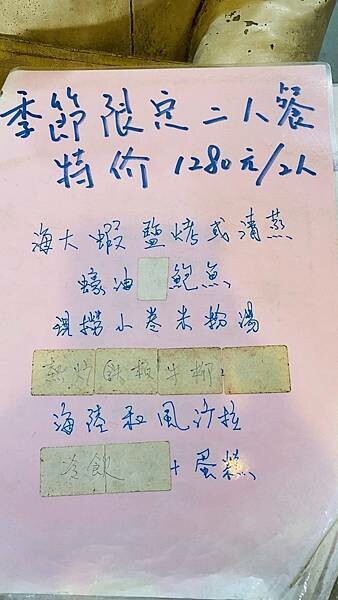 季節限定二人餐
特价 1280元/2人
海大蝦鹽烤或清蒸
蠔油 鮑魚
現撈小卷米粉湯
熱炒鉄板牛柳
海陸和風沙拉
冷飲 + 蛋糕